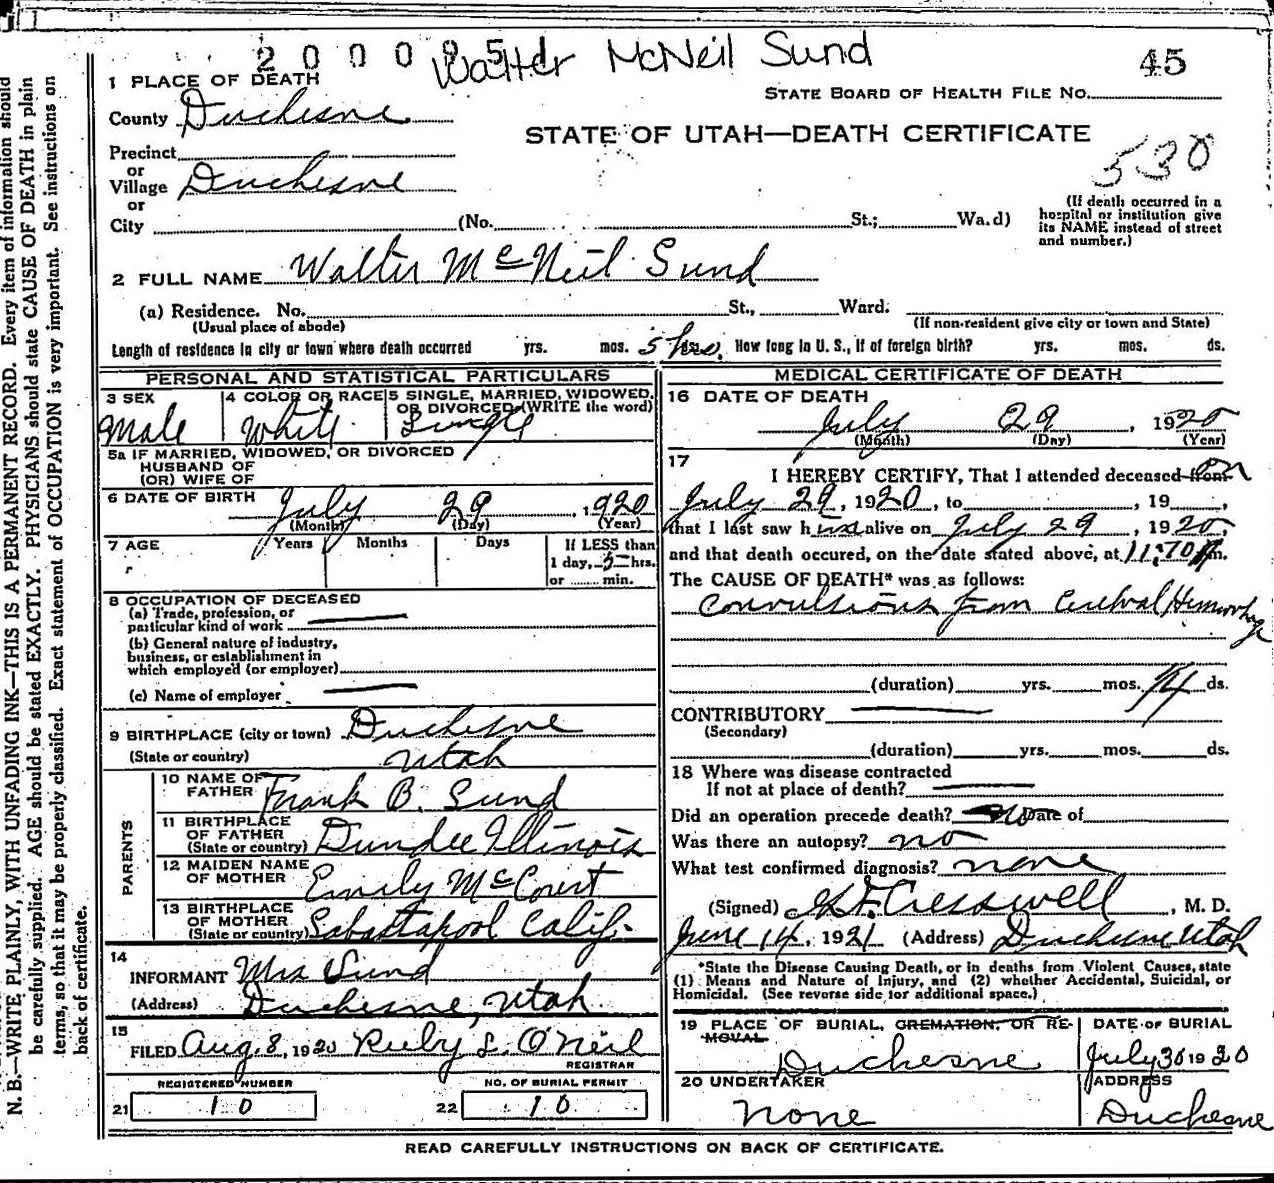 2 0 0 0 9 5 1 Walter McNeil Sund 45
1 PLACE OF DEATH
STATE BOARD OF HEALTH FILE No.
County Duchesne
STATE OF UTAH—DEATH CERTIFICATE
530
Precinct
or
Village Duchesne
or
City (No. St.; Wa.d)
(If death occurred in a
hospital or institution give
its NAME instead of street
and number.)
2 FULL NAME Walter McNeil Sund
(a) Residence. No. St., Ward.
(Usual place of abode) (If non-resident give city or town and State)
Length of residence in city or town where death occurred yrs. mos. 5 hrs. How long in U. S., if of foreign birth? yrs. mos. ds.
PERSONAL AND STATISTICAL PARTICULARS
3 SEX 4 COLOR OR RACE 5 SINGLE, MARRIED, WIDOWED,
OR DIVORCED (WRITE the word)
Male White Single
5a IF MARRIED, WIDOWED, OR DIVORCED
HUSBAND OF
(OR) WIFE OF
6 DATE OF BIRTH July 29, 1920
(Month) (Day) (Year)
7 AGE Years Months Days If LESS than
1 day, 5 hrs.
or ...... min.
8 OCCUPATION OF DECEASED
(a) Trade, profession, or
particular kind of work
(b) General nature of industry,
business, or establishment in
which employed (or employer)
(c) Name of employer
9 BIRTHPLACE (city or town) Duchesne
(State or country) Utah
PARENTS
10 NAME OF
FATHER Frank B. Sund
11 BIRTHPLACE
OF FATHER
(State or country) Dundee Illinois
12 MAIDEN NAME
OF MOTHER Emily McCourt
13 BIRTHPLACE
OF MOTHER
(State or country) Sabastapool Calif.
14
INFORMANT Mrs Sund
(Address) Duchesne, Utah
15
FILED Aug. 8, 1920 Ruby L. O'Neil
REGISTRAR
REGISTERED NUMBER NO. OF BURIAL PERMIT
21 10 22 10
MEDICAL CERTIFICATE OF DEATH
16 DATE OF DEATH
July 29, 1920
(Month) (Day) (Year)
17
I HEREBY CERTIFY, That I attended deceased from on
July 29, 1920, to , 19 ,
that I last saw him alive on July 29, 1920,
and that death occured, on the date stated above, at 11:70 m.
The CAUSE OF DEATH* was as follows:
Convulsions from Cerebral Hemorrhage
(duration) yrs. mos. ds.
CONTRIBUTORY
(Secondary)
(duration) yrs. mos. ds.
18 Where was disease contracted
If not at place of death?
Did an operation precede death? no Date of
Was there an autopsy? no
What test confirmed diagnosis? none
(Signed) Cresswell, M. D.
June 14, 1921 (Address) Duchesne Utah
*State the Disease Causing Death, or in deaths from Violent Causes, state
(1) Means and Nature of Injury, and (2) whether Accidental, Suicidal, or
Homicidal. (See reverse side for additional space.)
19 PLACE OF BURIAL, CREMATION, OR RE- DATE OF BURIAL
MOVAL
Duchesne July 30 1920
20 UNDERTAKER ADDRESS
none Duchesne
READ CAREFULLY INSTRUCTIONS ON BACK OF CERTIFICATE.
N. B.—WRITE PLAINLY, WITH UNFADING INK—THIS IS A PERMANENT RECORD. Every item of information should
be carefully supplied. AGE should be stated EXACTLY. PHYSICIANS should state CAUSE OF DEATH in plain
terms, so that it may be properly classified. Exact statement of OCCUPATION is very important. See instructions on
back of certificate.